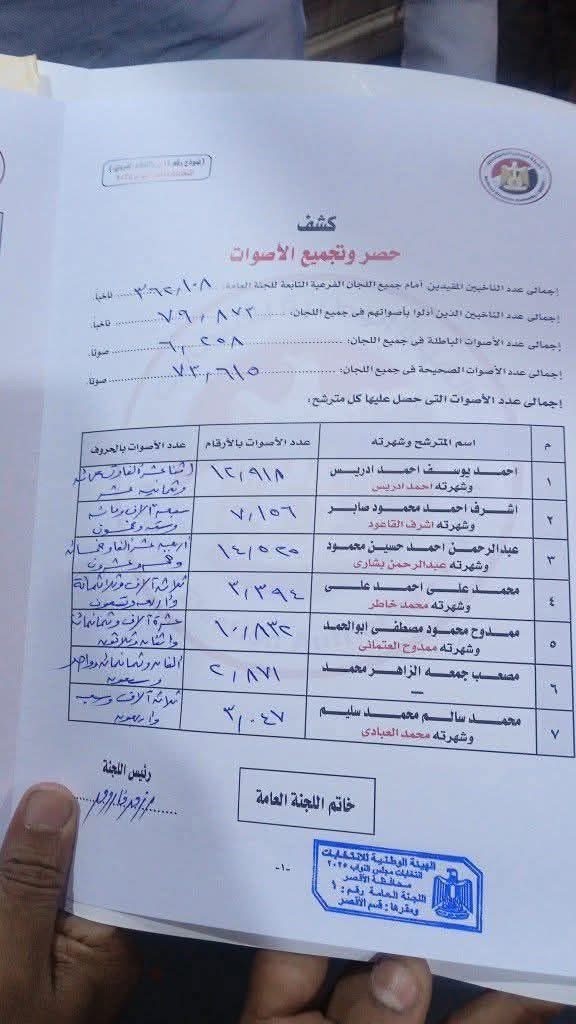 كشف
حصر وتجميع الأصوات
إجمالى عدد الناخبين المقيدين أمام جميع اللجان الفرعية التابعة للجنة العامة: ٣٦٢,١٠٨ ناخباً.
إجمالى عدد الناخبين الذين أدلوا بأصواتهم فى جميع اللجان: ٧٩,٨٧٣ ناخباً.
إجمالى عدد الأصوات الباطلة فى جميع اللجان: ٦,٢٥٨ صوتاً.
إجمالى عدد الأصوات الصحيحة فى جميع اللجان: ٧٣,٦١٥ صوتاً.
إجمالى عدد الأصوات التى حصل عليها كل مترشح:
م اسم المترشح وشهرته عدد الأصوات بالأرقام عدد الأصوات بالحروف
١ احمد يوسف احمد ادريس ١٢,٩١٨
وشهرته احمد ادريس
٢ اشرف احمد محمود صابر ٧,١٥٦
وشهرته اشرف القاعود
٣ عبدالرحمن احمد حسين محمود ١٤,٥٢٥
وشهرته عبدالرحمن بشارى
٤ محمد على احمد على ٣,٣٩٤ ثلاثة آلاف وثلاثمائة
وشهرته محمد خاطر وأربعة وتسعون
٥ ممدوح محمود مصطفى ابوالحمد ١٠,٨٣٢ عشرة آلاف وثمانمائة
وشهرته ممدوح العتمانى واثنان وثلاثون
٦ مصعب جمعه الزاهر محمد ٢,٨٧١ ألفان وثمانمائة وواحد
— وسبعون
٧ محمد سالم محمد سليم ٣,٠٤٧ ثلاثة آلاف وسبعة
وشهرته محمد العبادى وأربعون
رئيس اللجنة
خاتم اللجنة العامة
الهيئة الوطنية للانتخابات
انتخابات مجلس النواب ٢٠٢٥
محافظة الأقصر
اللجنة العامة رقم: ١
ومقرها: قسم الأقصر
-١-